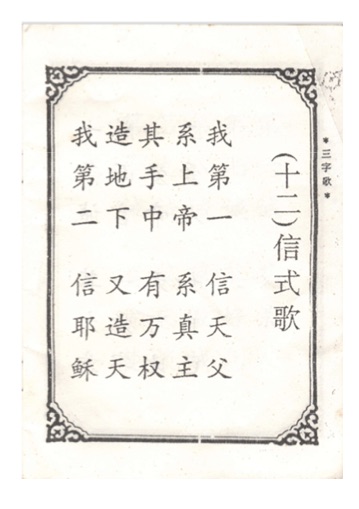 *三字歌*
(十二)信式歌
我第一 信天父
系上帝 系真主
其手中 有万权
造地下 又造天
我第二 信耶稣